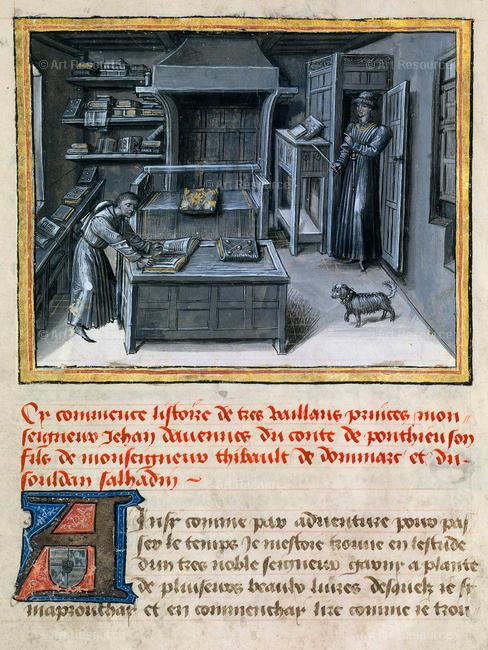 © Art Resource
Cy commence listoire de tres vaillans princes mon
seigneur Jehan davennes du conte de ponthieu son
fils de monseigneur thibault de dommarc et du
souldan salhadin ~
Ainsy comme par adventure pour pas
ser le temps ie mestoie trouve en lestude
dun tres noble seigneur garny a plante
de pluiseurs beaulx livres desquelz ie
maprouchay et en commenchay lire comme ie trou